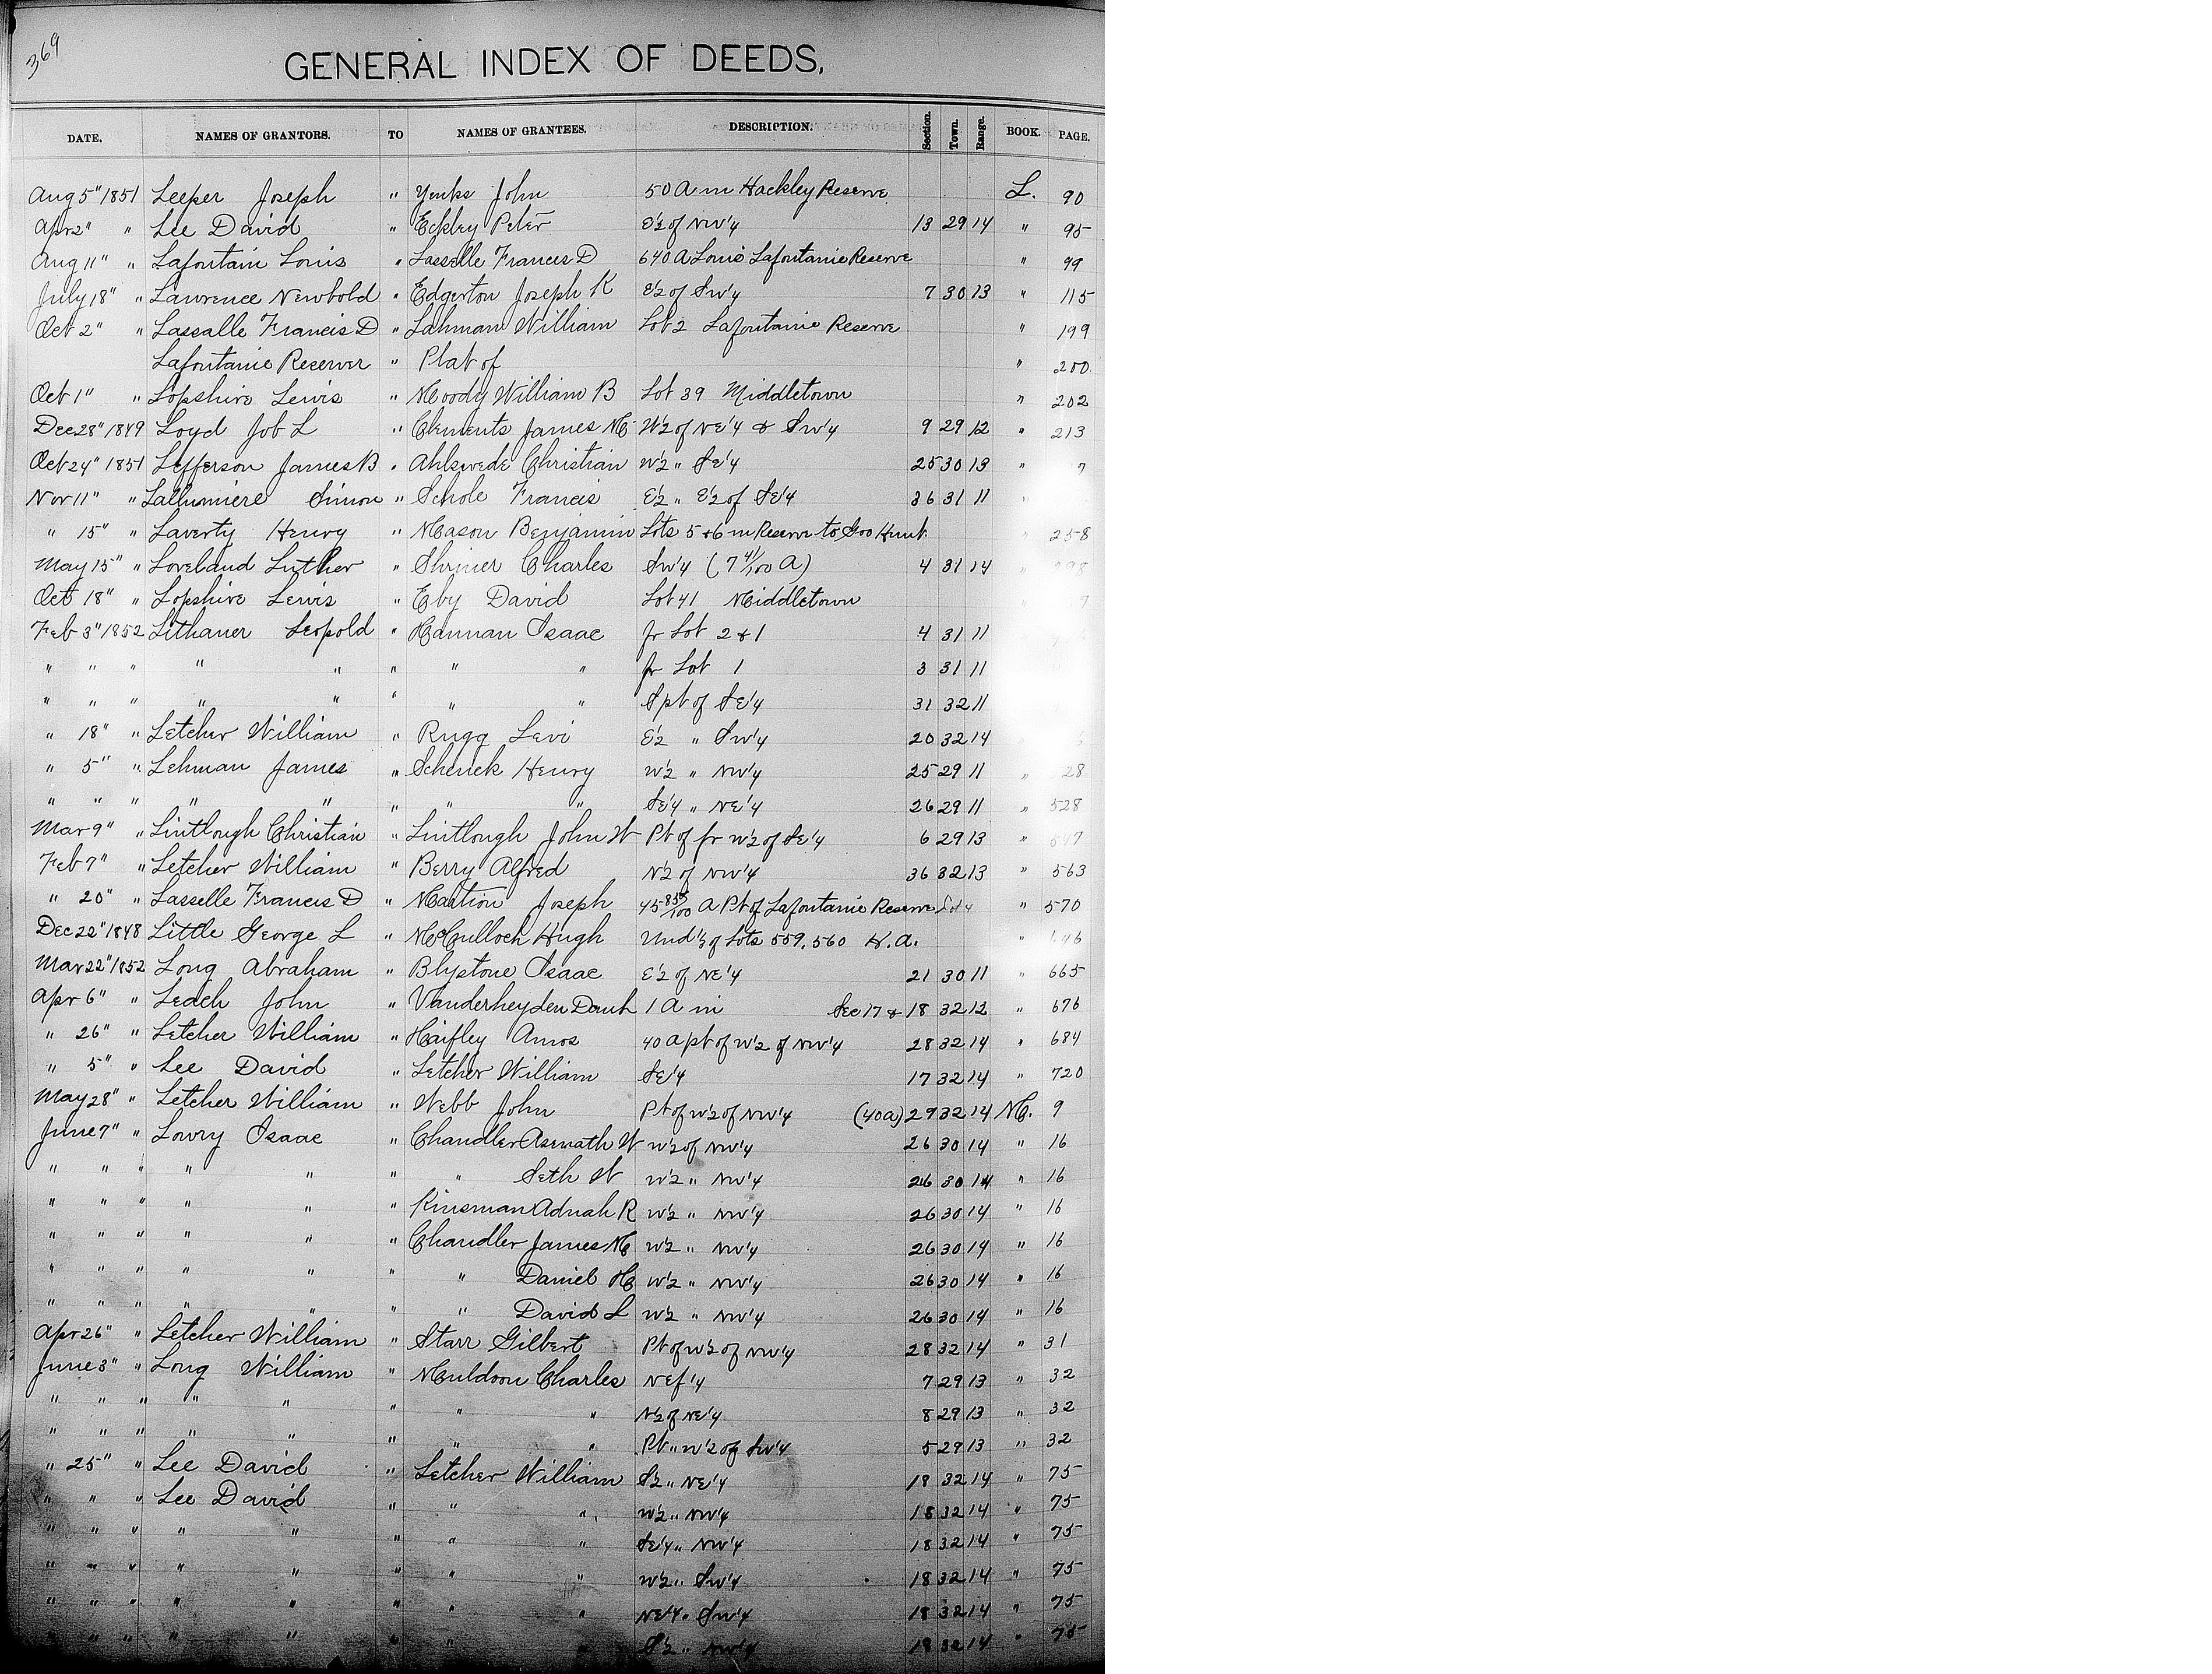 369
GENERAL INDEX OF DEEDS.
DATE. NAMES OF GRANTORS. TO NAMES OF GRANTEES. DESCRIPTION. Section. Town. Range. BOOK. PAGE.
Aug 5" 1851 Leeper Joseph " Yenks John 50 A in Hackley Reserve L. 90
Apr 2" " Lee David " Eckley Peter E½ of NW¼ 13 29 14 " 95
Aug 11" " Lafontain Louis " Lasselle Francis D 640 A Louis Lafontanie Reserve " 99
July 18" " Lawrence Newbold " Edgerton Joseph K E½ of SW¼ 7 30 13 " 115
Oct 2" " Lassalle Francis D " Lahman William Lot 2 Lafontanie Reserve " 199
Lafontanie Reserver " Plat of " 200
Oct 1" " Lopshire Lewis " Moody William B Lot 39 Middletown " 202
Dec 28" 1849 Loyd Job L " Clements James M W½ of NE¼ & SW¼ 9 29 12 " 213
Oct 24" 1851 Lefferson James B " Ahlswede Christian W½ " SE¼ 25 30 13 "
Nov 11" " Lallumiere Simon " Schole Francis E½ " E½ of SE¼ 36 31 11 "
" 15" " Laverty Henry " Mason Benjamin Lots 5 + 6 in Reserve to Goo Hunt " 258
May 15" " Loveland Luther " Shriner Charles SW¼ (7 41/100 A) 4 31 14 "
Oct 18" " Lopshire Lewis " Eby David Lot 41 Middletown
Feb 3" 1852 Lithaner Leopold " Hannan Isaac fr Lot 2 & 1 4 31 11
" " " " " " " " fr Lot 1 3 31 11
" " " " " " " " S pt of SE¼ 31 32 11
" 18" " Letcher William " Rugg Levi E½ " SW¼ 20 32 14
" 5" " Lehman James " Schenck Henry W½ " NW¼ 25 29 11 " 28
" " " " " " " " SE¼ " NE¼ 26 29 11 " 528
Mar 9" " Lintlough Christian " Lintlough John W Pt of fr W½ of SE¼ 6 29 13 " 547
Feb 7" " Letcher William " Berry Alfred N½ of NW¼ 36 32 13 " 563
" 20" " Lasselle Francis D " Mation Joseph 45 85/100 A Pt of Lafontanie Reserve Lot 4 " 570
Dec 22" 1848 Little George L " McCulloch Hugh Und ⅓ of Lots 559, 560 H.A. "
Mar 22" 1852 Long Abraham " Blystone Isaac E½ of NE¼ 21 30 11 " 665
Apr 6" " Leach John " Vanderheyden Danl 1 A in Sec 17 & 18 32 12 " 676
" 26" " Letcher William " Haifley Amos 40 A pt of W½ of NW¼ 28 32 14 " 684
" 5" " Lee David " Letcher William SE¼ 17 32 14 " 720
May 28" " Letcher William " Webb John Pt of W½ of NW¼ (40a) 29 32 14 M. 9
June 7" " Lowry Isaac " Chandler Asenath W W½ of NW¼ 26 30 14 " 16
" " " " " " " Seth W W½ " NW¼ 26 30 14 " 16
" " " " " " Kinsman Adnah R W½ " NW¼ 26 30 14 " 16
" " " " " " Chandler James M W½ " NW¼ 26 30 14 " 16
" " " " " " " Daniel H W½ " NW¼ 26 30 14 " 16
" " " " " " " David L W½ " NW¼ 26 30 14 " 16
Apr 26" " Letcher William " Starr Gilbert Pt of W½ of NW¼ 28 32 14 " 31
June 3" " Long William " Muldoon Charles NEf¼ 7 29 13 " 32
" " " " " " " " N½ of NE¼ 8 29 13 " 32
" " " " " " " " Pt " W½ of SW¼ 5 29 13 " 32
" 25" " Lee David " Letcher William S½ " NE¼ 18 32 14 " 75
" " " Lee David " " " W½ " NW¼ 18 32 14 " 75
" " " " " " " " SE¼ " NW¼ 18 32 14 " 75
" " " " " " " " W½ " SW¼ 18 32 14 " 75
" " " " " " " " NE¼ " SW¼ 18 32 14 " 75
" " " " " " " " S½ " NW¼ 18 32 14 " 75